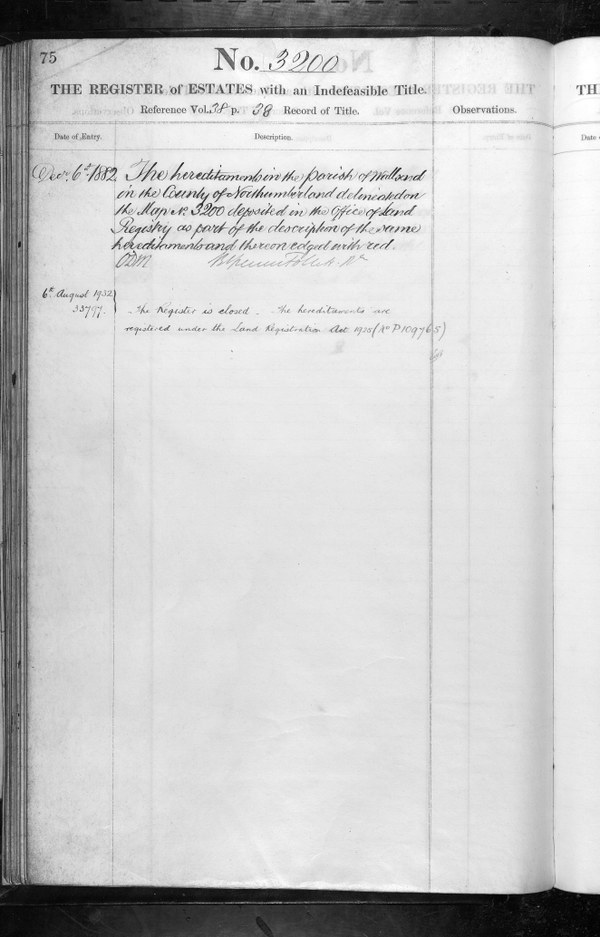 75
No. 3200
THE REGISTER of ESTATES with an Indefeasible Title.
Reference Vol. 38 p. 38 Record of Title.
Observations.
Date of Entry.
Description.
Decr. 6th 1882
The hereditaments in the parish of Wallsend
in the County of Northumberland delineated on
the Map No. 3200 deposited in the Office of Land
Registry as part of the description of the same
hereditaments and thereon edged with red.
6th August 1932
33797.
The Register is closed. The hereditaments are
registered under the Land Registration Act 1925 (No P109765)
TH
Date